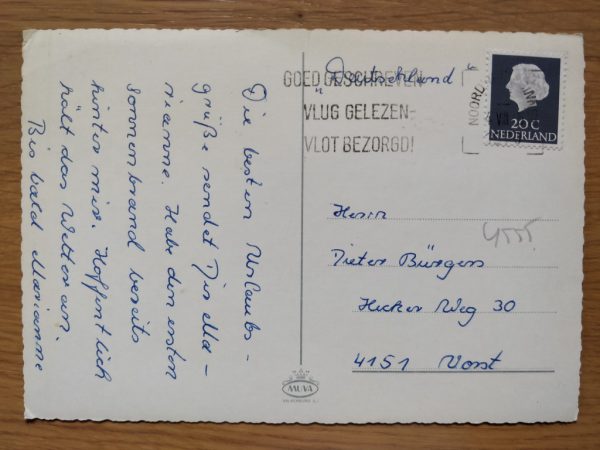 Die besten Urlaubs-
grüße sendet Dir Ma-
rianne. Habe den ersten
Sonnenbrand bereits
hinter mir. Hoffentlich
hält das Wetter an.
Bis bald Marianne
"Deutschland"
GOED GESCHREVEN-
VLUG GELEZEN-
VLOT BEZORGD!
NOORD
VII
20 C
NEDERLAND
Herrn
Dieter Bürgers
Hicker Weg 30
4151 Vorst
MUVA